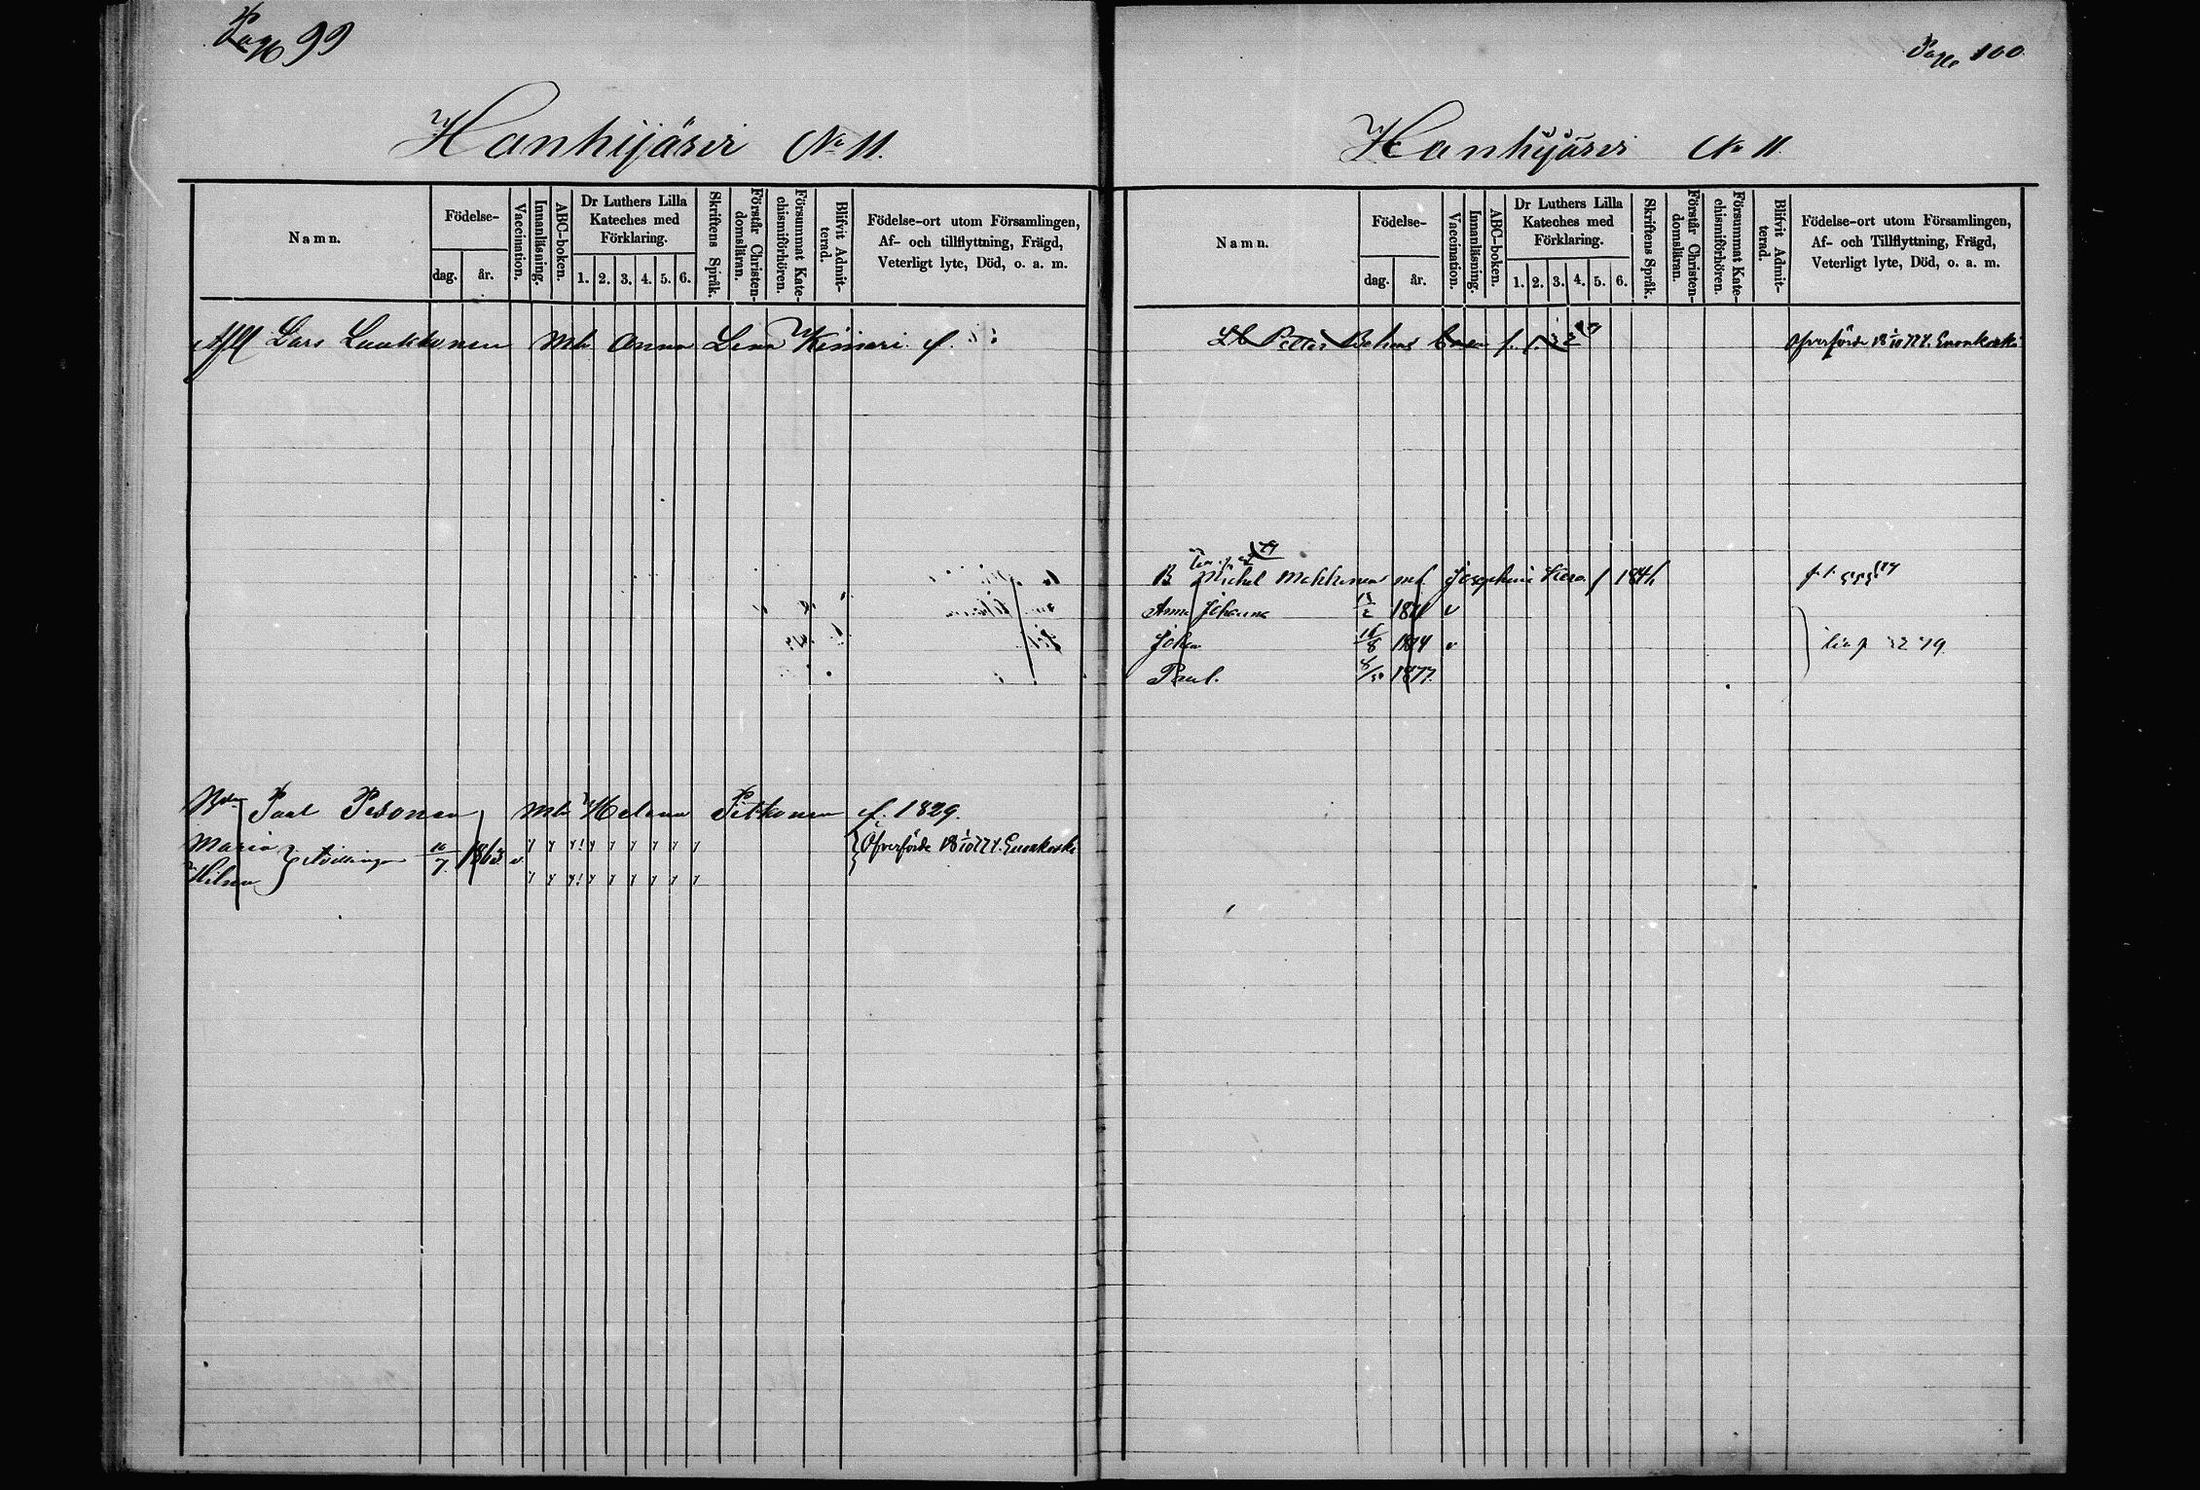 Page 99
Hanhijärvi No 11.
Namn.
Födelse-
dag. år.
Vaccination.
Innanläsning.
ABC-boken.
Dr Luthers Lilla Kateches med Förklaring.
1. 2. 3. 4. 5. 6.
Skriftens Språk.
Förstår Christendomsläran.
Försummat Katechismiförhören.
Blifvit Admitterad.
Födelse-ort utom Församlingen,
Af- och tillflyttning, Frägd,
Veterligt lyte, Död, o. a. m.
Lars Laukkanen Mh Anna Lena f.
Paal Pesonen Mh Helena Pitkonen f. 1829.
Maria
Tvillingar 10/7 1863 v
Hilma
Öfverförde 18 1/10 77 t. Enonkoski
Page 100
Hanhijärvi No 11
Namn.
Födelse-
dag. år.
Vaccination.
Innanläsning.
ABC-boken.
Dr Luthers Lilla Kateches med Förklaring.
1. 2. 3. 4. 5. 6.
Skriftens Språk.
Förstår Christendomsläran.
Försummat Katechismiförhören.
Blifvit Admitterad.
Födelse-ort utom Församlingen,
Af- och Tillflyttning, Frägd,
Veterligt lyte, Död, o. a. m.
Petter
Öfverförde 18 1/10 77 t. Enonkoski
B Michel Makkonen mh Josephina f 1841
Anna Johanna v
Johan 1874 v
Paul. 1877.